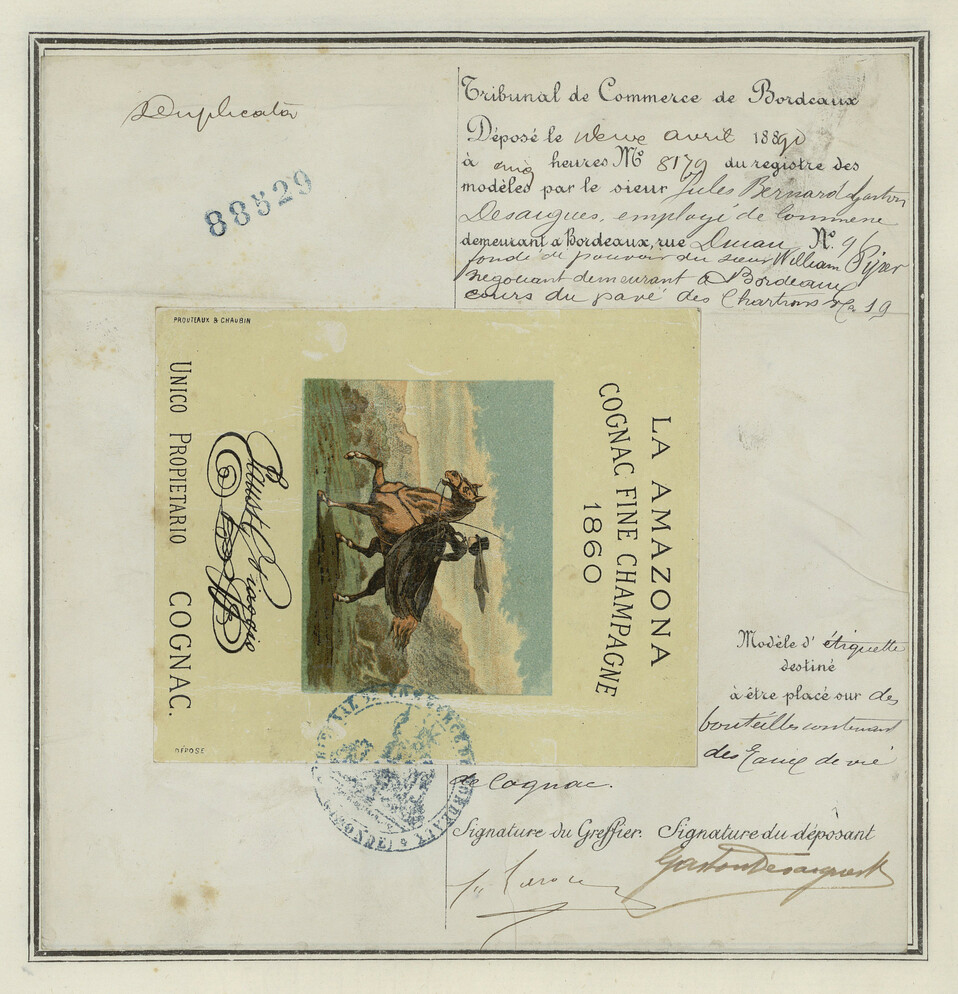 Duplicata
88529
Tribunal de Commerce de Bordeaux
Déposé le deux avril 1890
à cinq heures No 8179 du registre des
modèles par le sieur Jules Bernard Gaston
Desaigues, employé de commerce
demeurant à Bordeaux, rue No. 96
fondé de pouvoir du sieur William
négociant demeurant à Bordeaux
cours du pavé des Chartrons No 19
PROUTEAUX & CHAUBIN
LA AMAZONA
COGNAC FINE CHAMPAGNE
1860
UNICO PROPIETARIO COGNAC.
DÉPOSÉ
Modèle d'étiquette
destiné
à être placé sur des
bouteilles contenant
des Eaux de vie
de Cognac.
TRIBUNAL DE COMMERCE DE BORDEAUX (GIRONDE)
Signature du Greffier. Signature du déposant